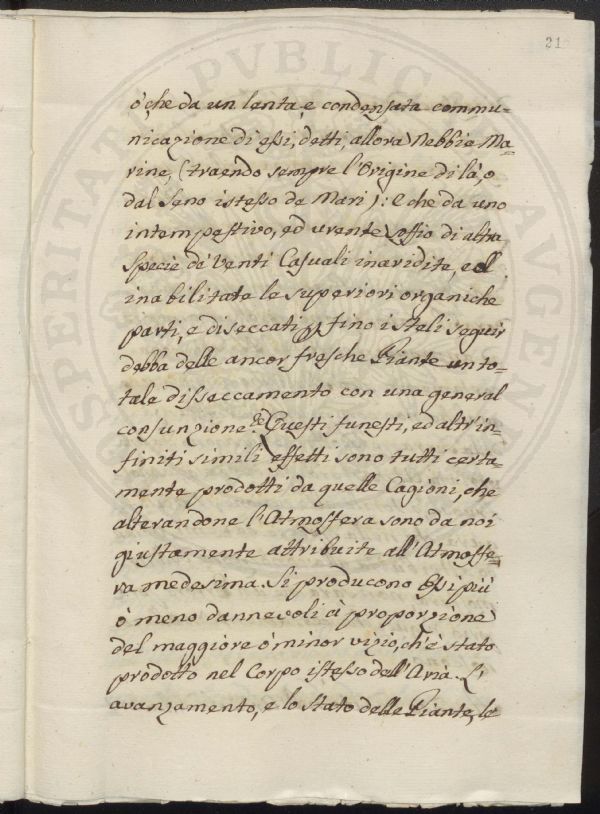 21
ò che da un lenta e condensata commu-
nicazione di essi, detti, allora Nebbie Ma-
rine, (traendo sempre l'Origine di là, o
dal Seno istesso de Mari): e che da uno
intempestivo, ed urente soffio di altra
Specie de' Venti Casuali inaridite, ed
inabilitate le superiori organiche
parti, e diseccati fino i steli seguir
debba delle ancor fresche Piante un to-
tale disseccamento con una general
consunzione. Questi funesti, ed altr'in-
finiti simili effetti sono tutti certa-
mente prodotti da quelle Cagioni, che
alterandone l'Atmosfera sono da noi
giustamente attribuite all'Atmosfe-
ra medesima. Si producono Essi più
ò meno dannevoli à proporzione
del maggiore ò minor vizio, ch'è stato
prodotto nel Corpo istesso dell'Aria. L'
avanzamento, e lo stato delle Piante, le
PERITATI PVBLIC AVGEN